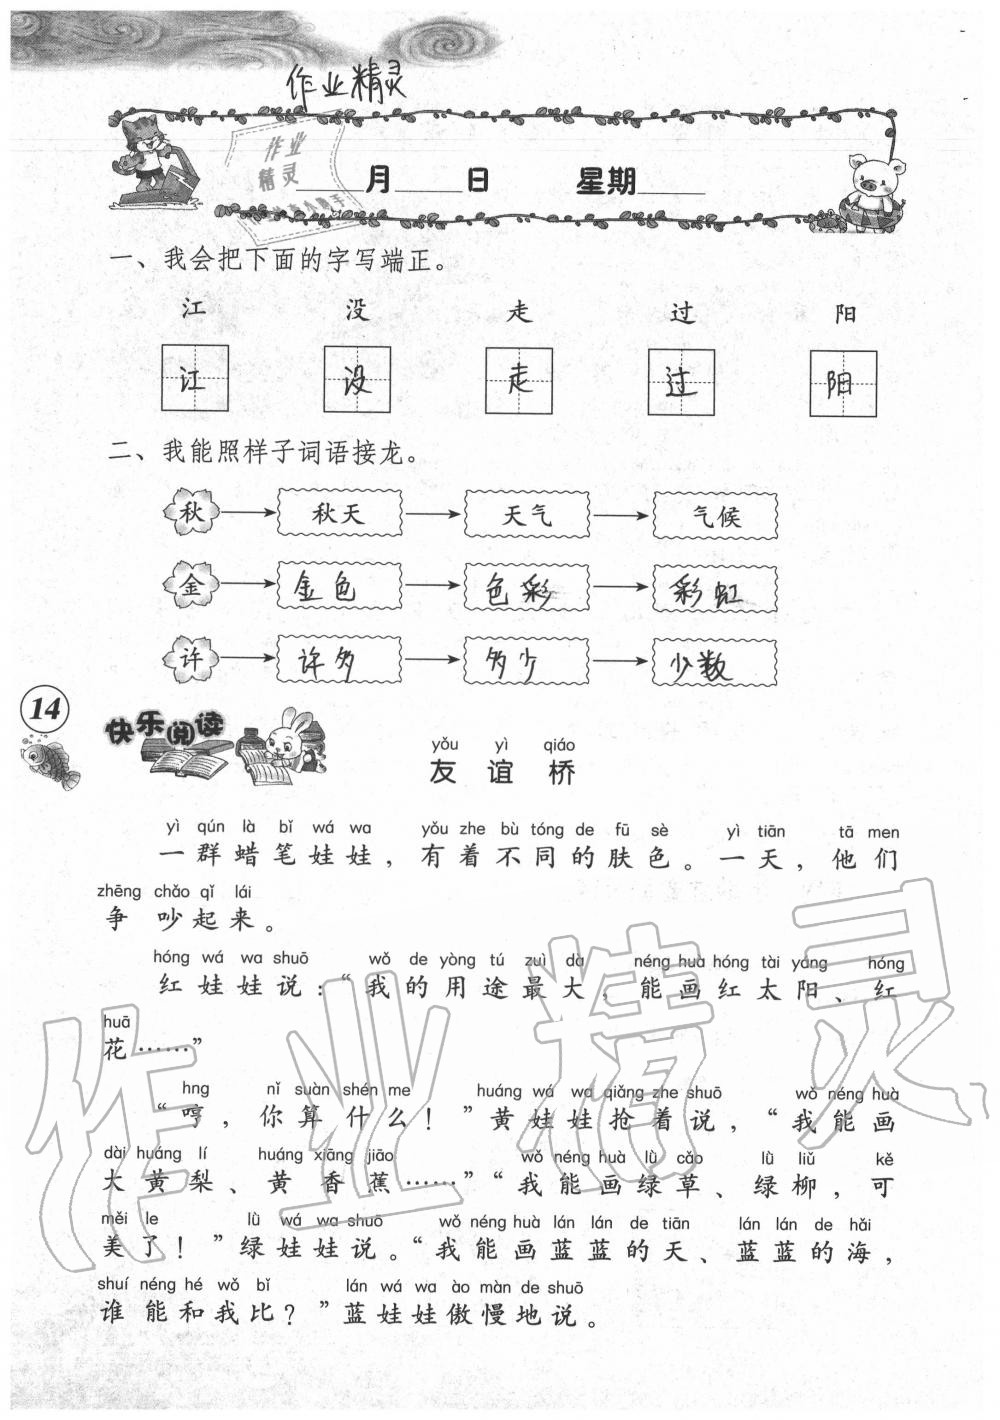 作业精灵
作业
精灵
月 日 星期
一、我会把下面的字写端正。
江 没 走 过 阳
江 没 走 过 阳
二、我能照样子词语接龙。
秋 秋天 天气 气候
金 金色 色彩 彩虹
许 许多 多少 少数
14
快乐阅读
yǒu yì qiáo
友谊桥
yì qún là bǐ wá wa yǒu zhe bù tóng de fū sè yì tiān tā men
一群蜡笔娃娃，有着不同的肤色。一天，他们
zhēng chǎo qǐ lái
争吵起来。
hóng wá wa shuō wǒ de yòng tú zuì dà néng huà hóng tài yáng hóng
红娃娃说：“我的用途最大，能画红太阳、红
huā
花……”
hng nǐ suàn shén me huáng wá wa qiǎng zhe shuō wǒ néng huà
“哼，你算什么！”黄娃娃抢着说，“我能画
dài huáng lí huáng xiāng jiāo wǒ néng huà lǜ cǎo lǜ liǔ kě
大黄梨、黄香蕉……”“我能画绿草、绿柳，可
měi le lǜ wá wa shuō wǒ néng huà lán lán de tiān lán lán de hǎi
美了！”绿娃娃说。“我能画蓝蓝的天、蓝蓝的海，
shuí néng hé wǒ bǐ lán wá wa ào màn de shuō
谁能和我比？”蓝娃娃傲慢地说。
作业精灵